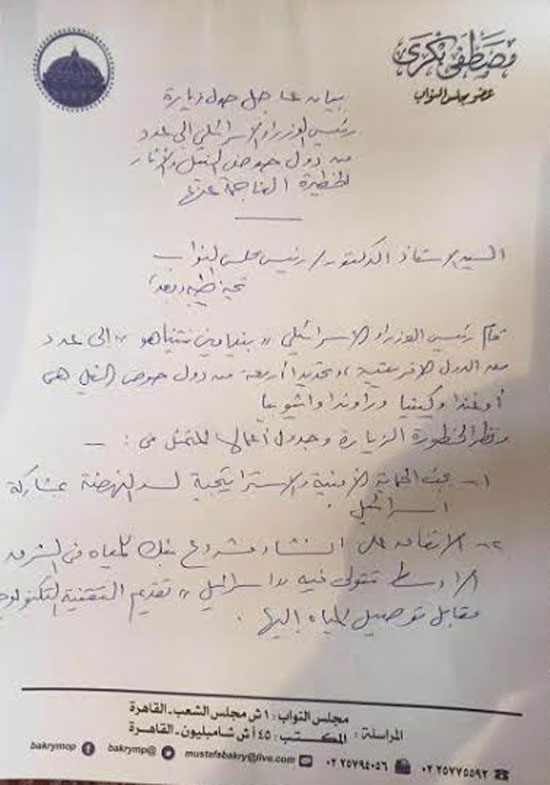 مصطفى بكرى
عضو مجلس النواب
بيان عاجل حول زيارة
رئيس الوزراء الإسرائيلي الى عدد
من دول حوض النيل والآثار
الخطيرة الناجمة عنها
السيد الأستاذ الدكتور / رئيس مجلس النواب
تحية طيبة وبعد
قام رئيس الوزراء الإسرائيلي " بنيامين نتنياهو " الى عدد
من الدول الافريقية، وتحديدا أربعة من دول حوض النيل هى
أوغندا وكينيا وراوندا واثيوبيا
ونظرا لخطورة الزيارة وجدول أعمالها المتمثل فى : -
١- بحث الحماية الأمنية والاستراتيجية لسد النهضة بمشاركة
اسرائيل .
٢- الاتفاق على انشاء مشروع بنك للمياه فى الشرق
الأوسط تتولى فيه " اسرائيل " تقديم التقنية التكنولوجية
مقابل توصيل المياه إليها .
المراسلة : مجلس النواب : ١ ش مجلس الشعب - القاهرة
المكتب : ٤٥ أ ش شامبليون - القاهرة
٠٢ ٢٥٧٧٥٥٩٢ ٠٢ ٢٥٧٩٤٠٥٦ mustafabakry@live.com bakrymp@ bakrymop